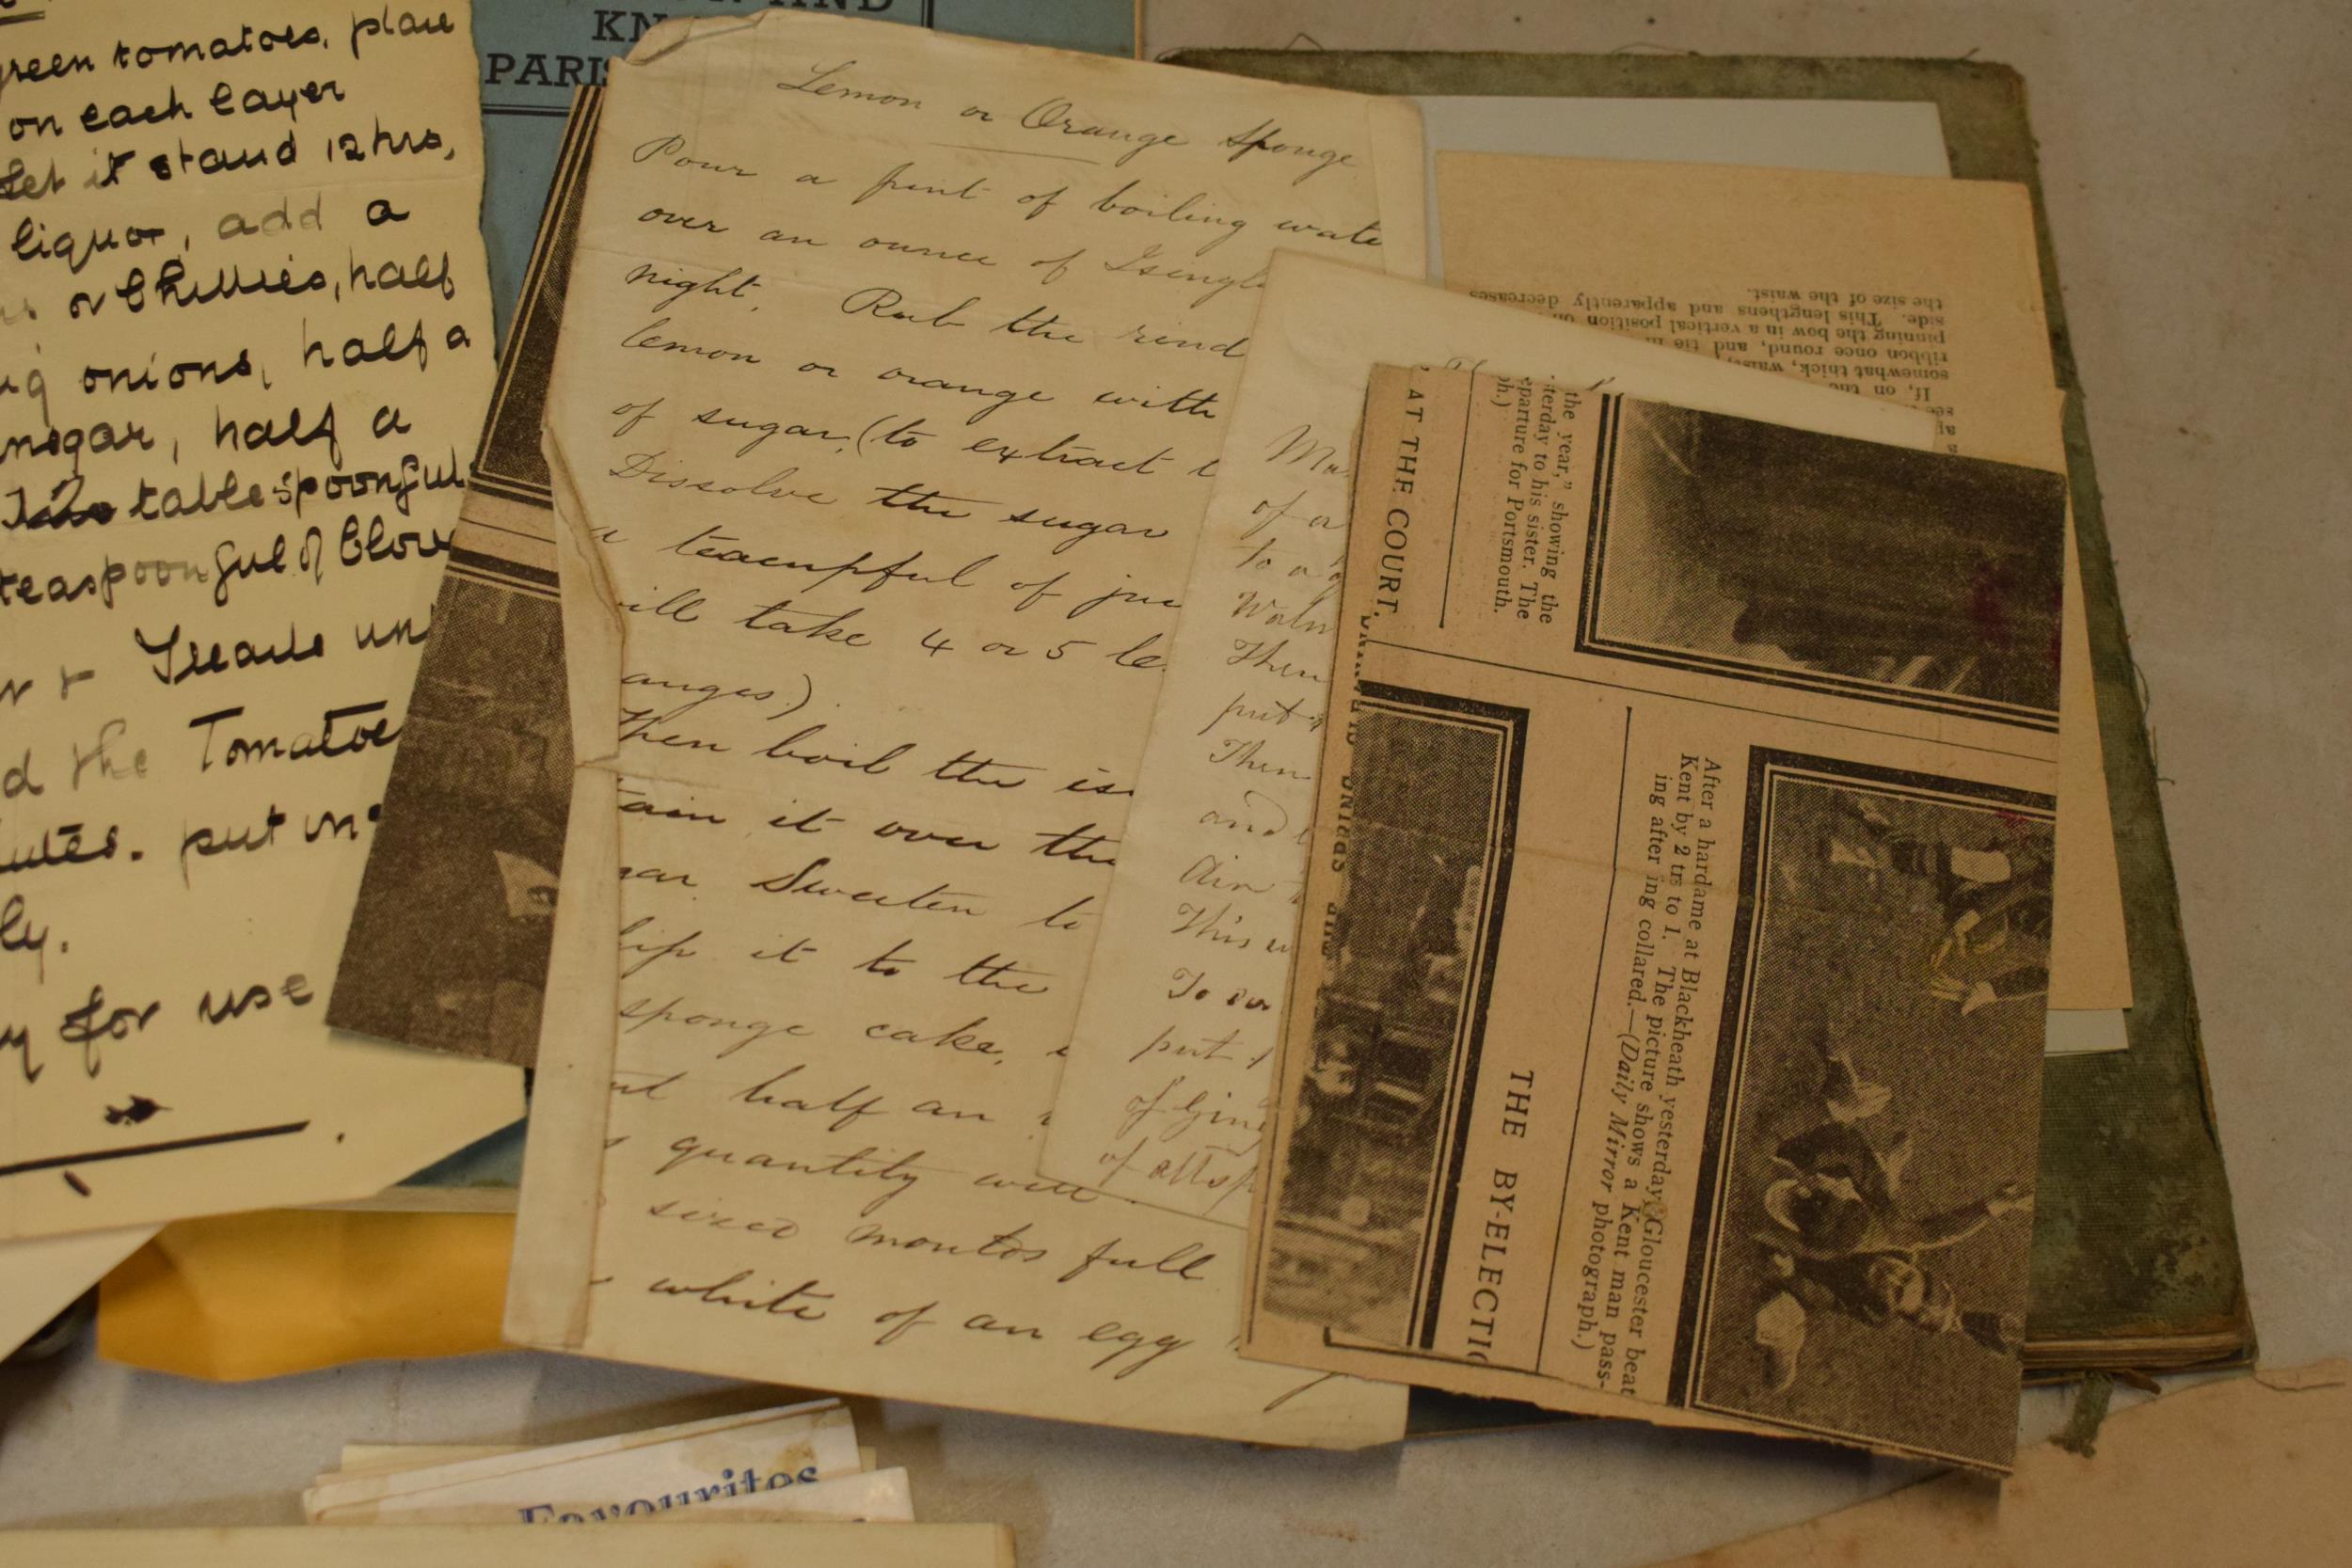 green tomatoes, place
on each layer
Let it stand 12 hrs,
liquor, add a
or Chillies, half
onions, half a
half a
tablespoonful
teaspoonful of Clove
Treacle
the Tomatoe
put in
ly.
for use
AND
KN
PARIS
Lemon or Orange Sponge
Pour a pint of boiling wate
over an ounce of Isingl
night. Rub the rind
lemon or orange with
of sugar, (to extract
Dissolve the sugar
a teacupful of
ill take 4 or 5 le
anges.)
Then boil the is
ain it over the
gar Sweeten to
hip it to the
sponge cake,
half an
quantity will
sized moulds full
white of an egg
of a
to a
Waln
Then
put
Then
and
Air
This
To
put
of Gin
of
AT THE COURT.
the year," showing the
terday to his sister. The
eparture for Portsmouth.
ph.)
After a hardame at Blackheath yesterday Gloucester beat
Kent by 2 trs to 1. The picture shows a Kent man pass-
ing after ing collared.—(Daily Mirror photograph.)
THE BY-ELECTIO
If, on the
somewhat thick, waist,
ribbon once round, and tie
pinning the bow in a vertical position on
side. This lengthens and apparently decreases
the size of the waist.
Favourites